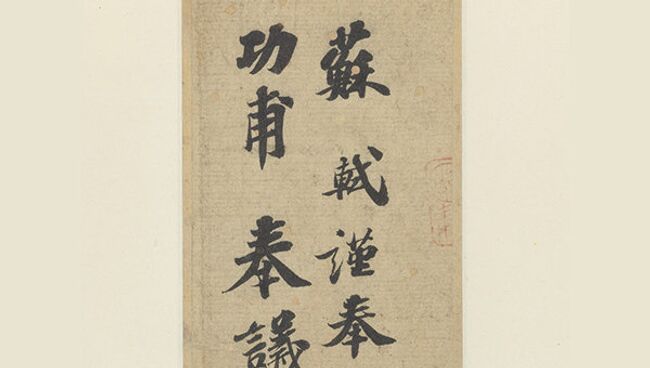 蘇軾謹奉
功甫奉議